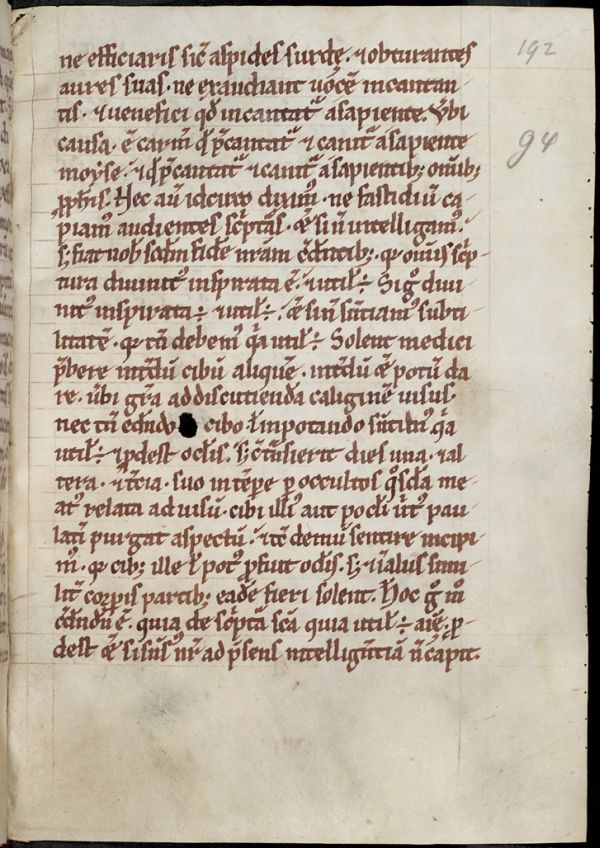 192
94
ne efficiaris sic̄ aspides surdę. ⁊ obturantes
aures suas. ne exaudiant uocē incantan
tis. ⁊ uenefici qd̄ incantat᷑ a sapiente. Vbi
causa. ē carm̄ qͥ p̄cantat᷑ ⁊ canit᷑ a sapiente
moyse. ⁊ qͥ p̄cantat᷑ ⁊ canit᷑ a sapientib; omīb;
ꝓph̄is. Hec aū idcirco diximꝰ. ne fastidiū ca
piamꝰ audientes sc̄ptᷓas. &ē si n̄ intelligamꝰ.
s; fiat nob̄ scdm̄ fidē nr̄am c̄dentib;. qꝛ om̄is sc̄p
tura diuinitꝰ inspirata ē. ⁊ util̄ ÷ Si gͦ diui
nitꝰ inspirata ÷ ⁊ util̄ ÷. &ē si n̄ sentiamꝰ subti
litatē. qꝛ tn̄ debemꝰ qͥa util̄ ÷ Solent medici
p̄bere int̄dū cibū aliquē. int̄dū &ē potū da
re. ubi gr̄a ad discutiendā caliginē uisus.
nec tn̄ edendo cibo ł in potando sentitꝰ qͥa
util̄ ÷ ⁊ ꝓdest oc̄lis. s; c̄ t̄nsierit dies una. ⁊ al
tera. ⁊ t̄cia. suo in tēpe p̱ occultos qͦsdā me
atꝰ relata ad uisū. cibi illiꝰ aut poc̄li uirtꝰ pau
latī purgat aspectū. ⁊ tc̄ demū sentire incipi
mꝰ. qꝛ cibꝰ ille ł potꝰ ꝓfuit oc̄lis. s; ⁊ in aliis simi
lit̄ corp̱is partib; eadē fieri solent. Hoc gͦ mͦ
c̄dendū ē. quia de sc̄ptᷓa sc̄a quia util̄ ÷ aīę. ⁊ ꝓ
dest &ē si sensꝰ nr̄ ad p̄sens intelligentiā n̄ capit.